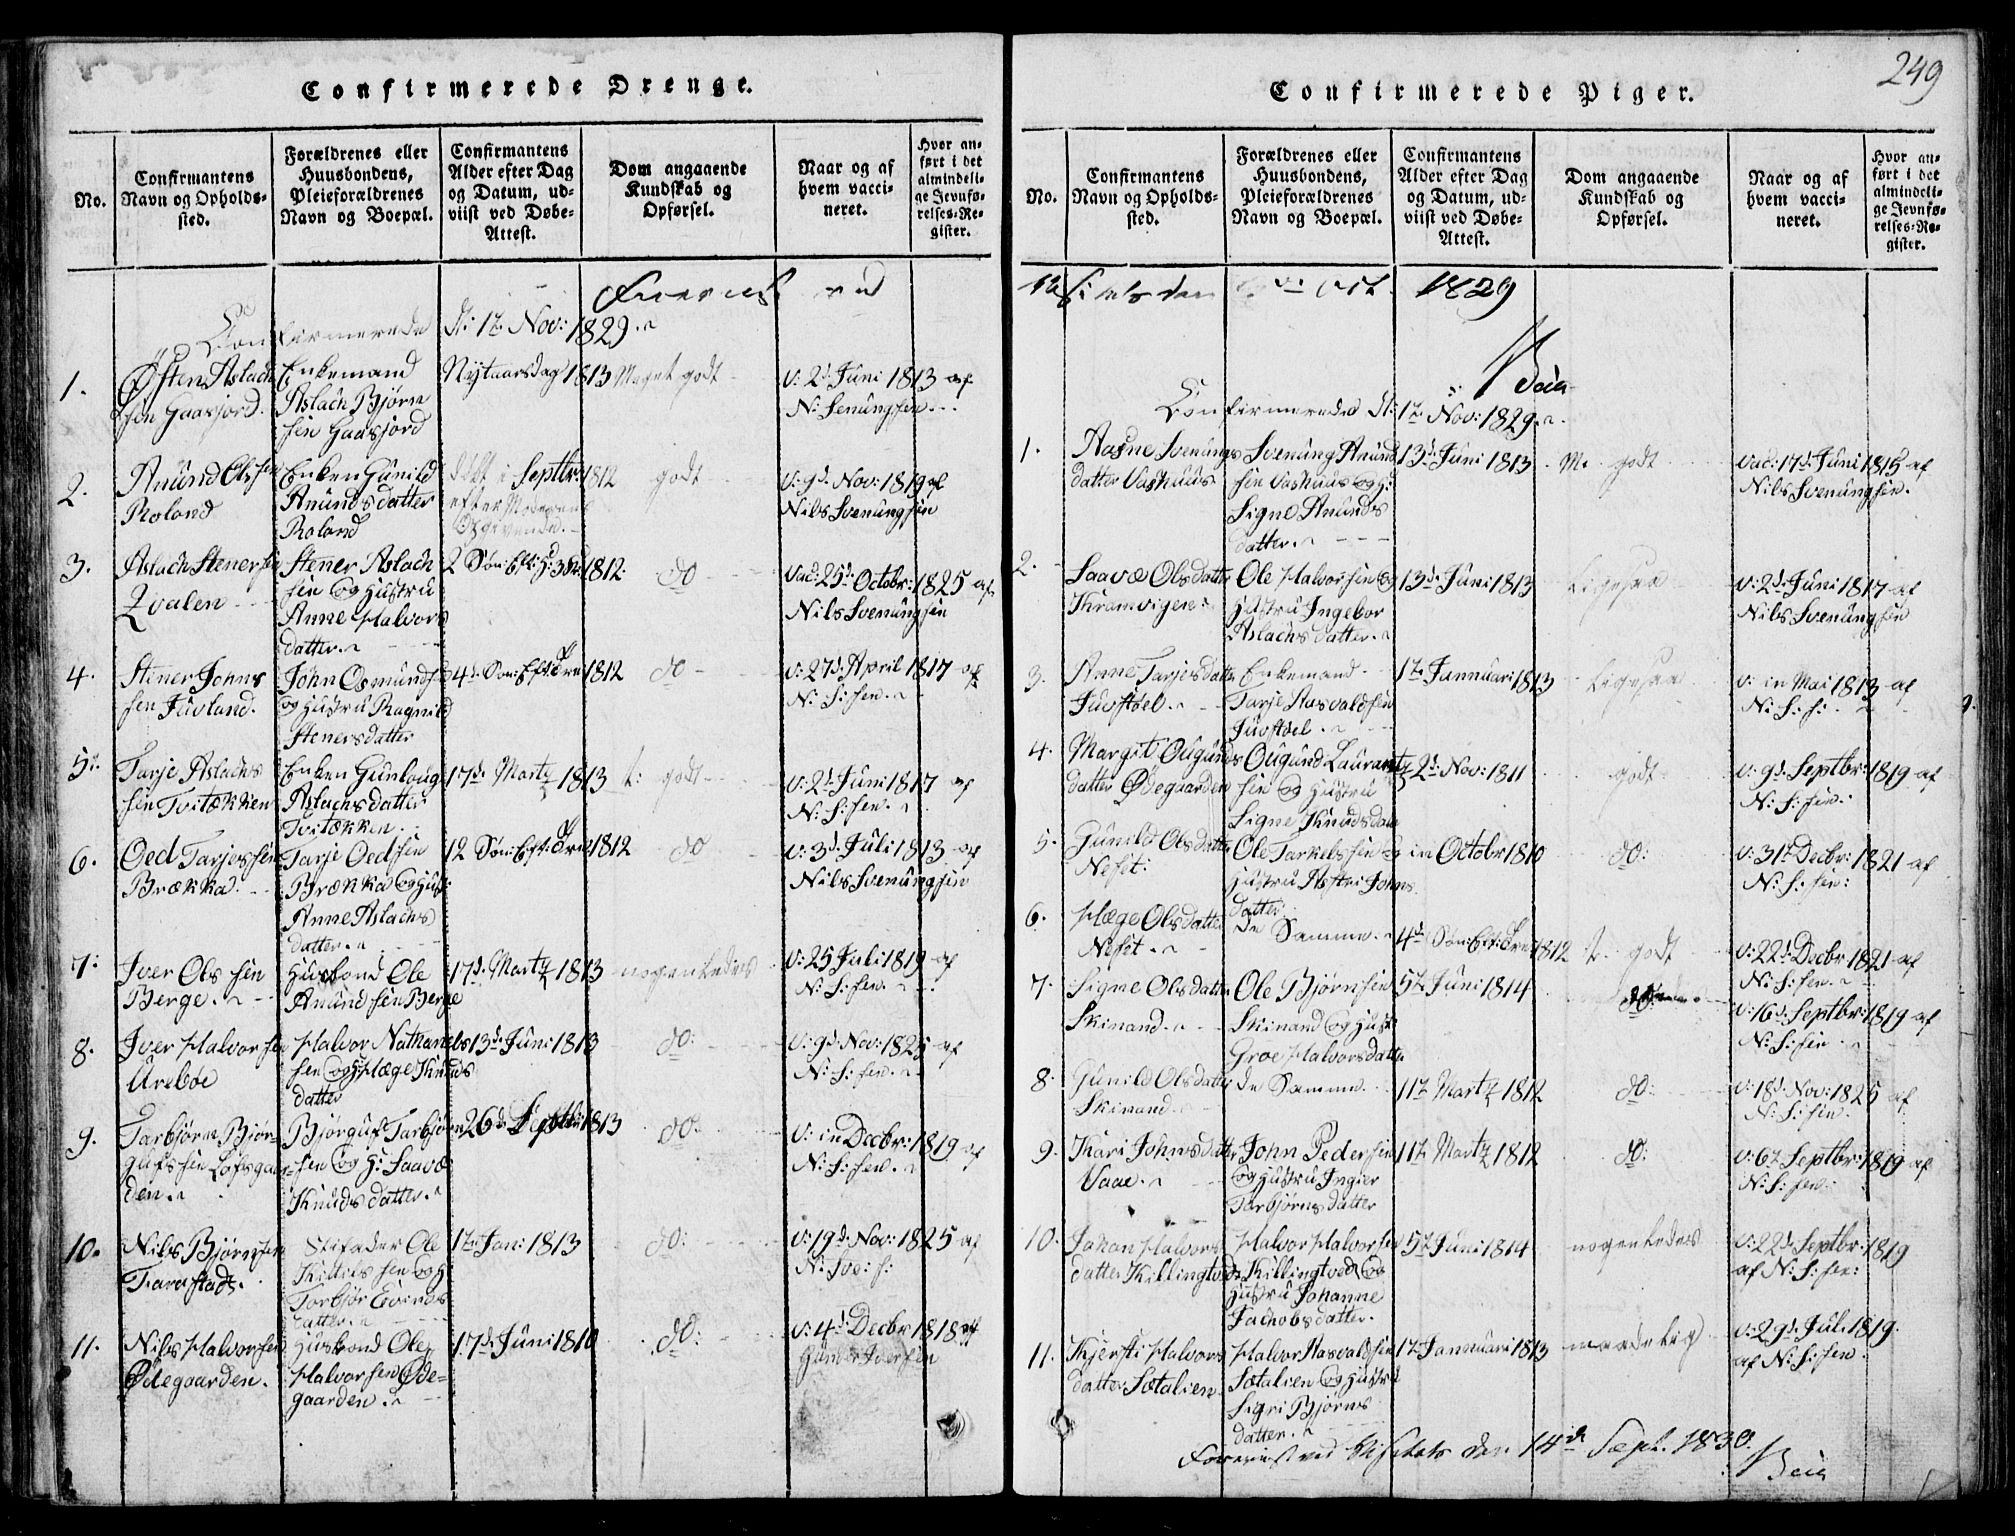 249
Confirmerede Drenge.
No.
Confirmantens
Navn og Opholds-
sted.
Forældrenes eller
Huusbondens,
Pleieforældrenes
Navn og Boepæl.
Confirmantens
Alder efter Dag
og Datum, ud-
viist ved Døbe-
Attest.
Dom angaaende
Kundskab og
Opførsel.
Naar og af
hvem vacci-
neret.
Hvor an-
ført i det
almindeli-
ge Jevnfø-
relses-Re-
gister.
Confirmerede d: 1te Nov: 1829.
1.
Østen Aslach
sen Gaasjord.
Enkemand
Aslach Bjørn
sen Gaasjord
Nytaarsdag 1813
Meget godt
v: 2d Juni 1813 af
N: Senungsen
2.
Anund Olssen
Roland
Enken Gunild
Anunds datter
Roland
født i Septbr: 1812
efter Moderens
Opgivende.
godt
v: 9d Nov: 1819 af
Nils Svenungsen
3.
Aslach Stenersen
Qvalen
Stener Aslach
sen og Hustru
Anne Halvors
datter.
2 Søn: Eft: H: 3 K: 1812
do
vac: 25d Octobr: 1825 af
Nils Svenungsen
4.
Stener Johns
sen Juvland.
John Osmundsen
og Hustru Ragnild
Stenersdatter
4d Søn: Eft: Tre: 1812
do
v: 27d April 1817 af
N: S: sen.
5.
Tarje Aslachs
sen Tvitækken
Enken Gunloug
Aslachsdatter
Tvitækken.
17d Marty 1813
t: godt
v: 2d Juni 1817 af
N: S: sen.
6.
Oed Tarjessen
Brækka.
Tarje Oedsen
Brækka og Hust:
Anne Aslachs
datter.
12 Søn: Eft: Tre: 1812
do
v: 3d Juli 1813 af
Nils Svenungsen
7.
Iver Ols sen
Berge.
Husbond Ole
Anundsen Berge
17d Marty 1813
nogenledes
v: 25 Juli 1819 af
N: S: sen.
8.
Iver Halvorsen
Urebøe
Halvor Nathanels
sen og H: Hæge Knuds
datter
13d Juni 1813
do:
v: 9d Nov: 1825 af
N: S: sen.
9.
Tarbjørn Bjør-
gufs sen Loftsgaar-
den.
Bjørguf Tarbjørn
sen og H: Saavæ
Knuds datter.
26d Septbr: 1813
do:
v: in Decbr: 1819 af
N: S: sen.
10.
Nils Bjørnsen
Stifader Ole
Kittils sen og H
Torbjør Eivinds
datter.
1te Jan: 1813
do:
v: 19d Nov: 1825 af
N: Sve: s:
11.
Nils Halvorsen
Ødegaarden.
Husbond Ole
Halvorsen Øde-
gaarden.
17d Juni 1810
do:
v: 4d Decbr 1818 af
Gunder Iversen
Confirmerede Piger.
No.
Confirmantens
Navn og Opholds-
sted.
Forældrenes eller
Huusbondens,
Pleieforældrenes
Navn og Boepæl.
Confirmantens
Alder efter Dag
og Datum, ud-
viist ved Døbe-
Attest.
Dom angaaende
Kundskab og
Opførsel.
Naar og af
hvem vacci-
neret.
Hvor an-
ført i det
almindeli-
ge Jevnfø-
relses-Re-
gister.
Oct. 1829
Confirmerede d: 1te Nov: 1829.
1.
Aasne Svenungs
datter Vashuus
Svenung Anund
sen Vashuus og H:
Signe Anunds
datter.
13d Juni 1813
M. godt
vac: 17d Juni 1815 af
Nils Svenungsen.
2.
Saavæ Olsdatter
Kramvigen
Ole Halvorsen og
Hustru Ingebor
Aslachsdatter.
13d Juni 1813
Ligesaa
v: 2d Juni 1817 af
Nils Svenungsen
3.
Anne Tarjesdatter
Juvstøel.
Enkemand
Tarje Aasvaldsen
Juvstøel.
1te Jannuari 1813
Ligesaa
v: in Mai 1813 af
N: S: s:
4.
Margit Ougunds
datter Ødegaarden
Ougund Laurants
sen og Hustru
Signe Knudsdatter
2d Nov: 1811
godt
v: 9d Septbr: 1819 af
N: S: sen.
5.
Gunild Olsdatter
Neset:
Ole Tarkelssen og
Hustru Astri Johns
datter
in Octobr 1810
do:
v: 31te Decbr: 1821 af
N: S: sen:
6.
Hæge Olsdatter
Neset.
De Samme.
4d Søn: Eft: Tre: 1812
t. godt
v: 22d Decbr 1821 af
N: S: sen.
7.
Signe Olsdatter
Skinand.
Ole Bjørnsen
Skinand og Hust:
Groe Halvorsdatter
5te Juni 1814
do:
v: 16d Septbr: 1819 af
N: S: sen
8.
Gunild Olsdatter
Skinand.
De Samme.
11te Marty 1812
do:
v: 18d Nov: 1825 af
N: S: sen.
9.
Kari Johnsdatter
Vaae.
John Pedersen
og Hustru Ingier
Tarbjørnsdatter
11te Marty 1812
do:
v: 6te Septbr: 1819 af
N: S: sen:
10.
Johan Halvors
datter Killingtved
Halvor Halvorsen
Killingtved og
Hustru Johanne
Jachobsdatter.
5te Juni 1814
nogenledes
v: 22d Septbr: 1819
af N: S: sen:
11.
Kjersti Halvors
datter Sætalien
Halvor Aasvaldsen
Sætalien og Hustru
Sigri Bjørns
datter.
1te Jannuari 1813
maadelig
v: 29d Juli 1819.
af N: S: sen
Foreviist ved Visitats den 14de Sept. 1830.